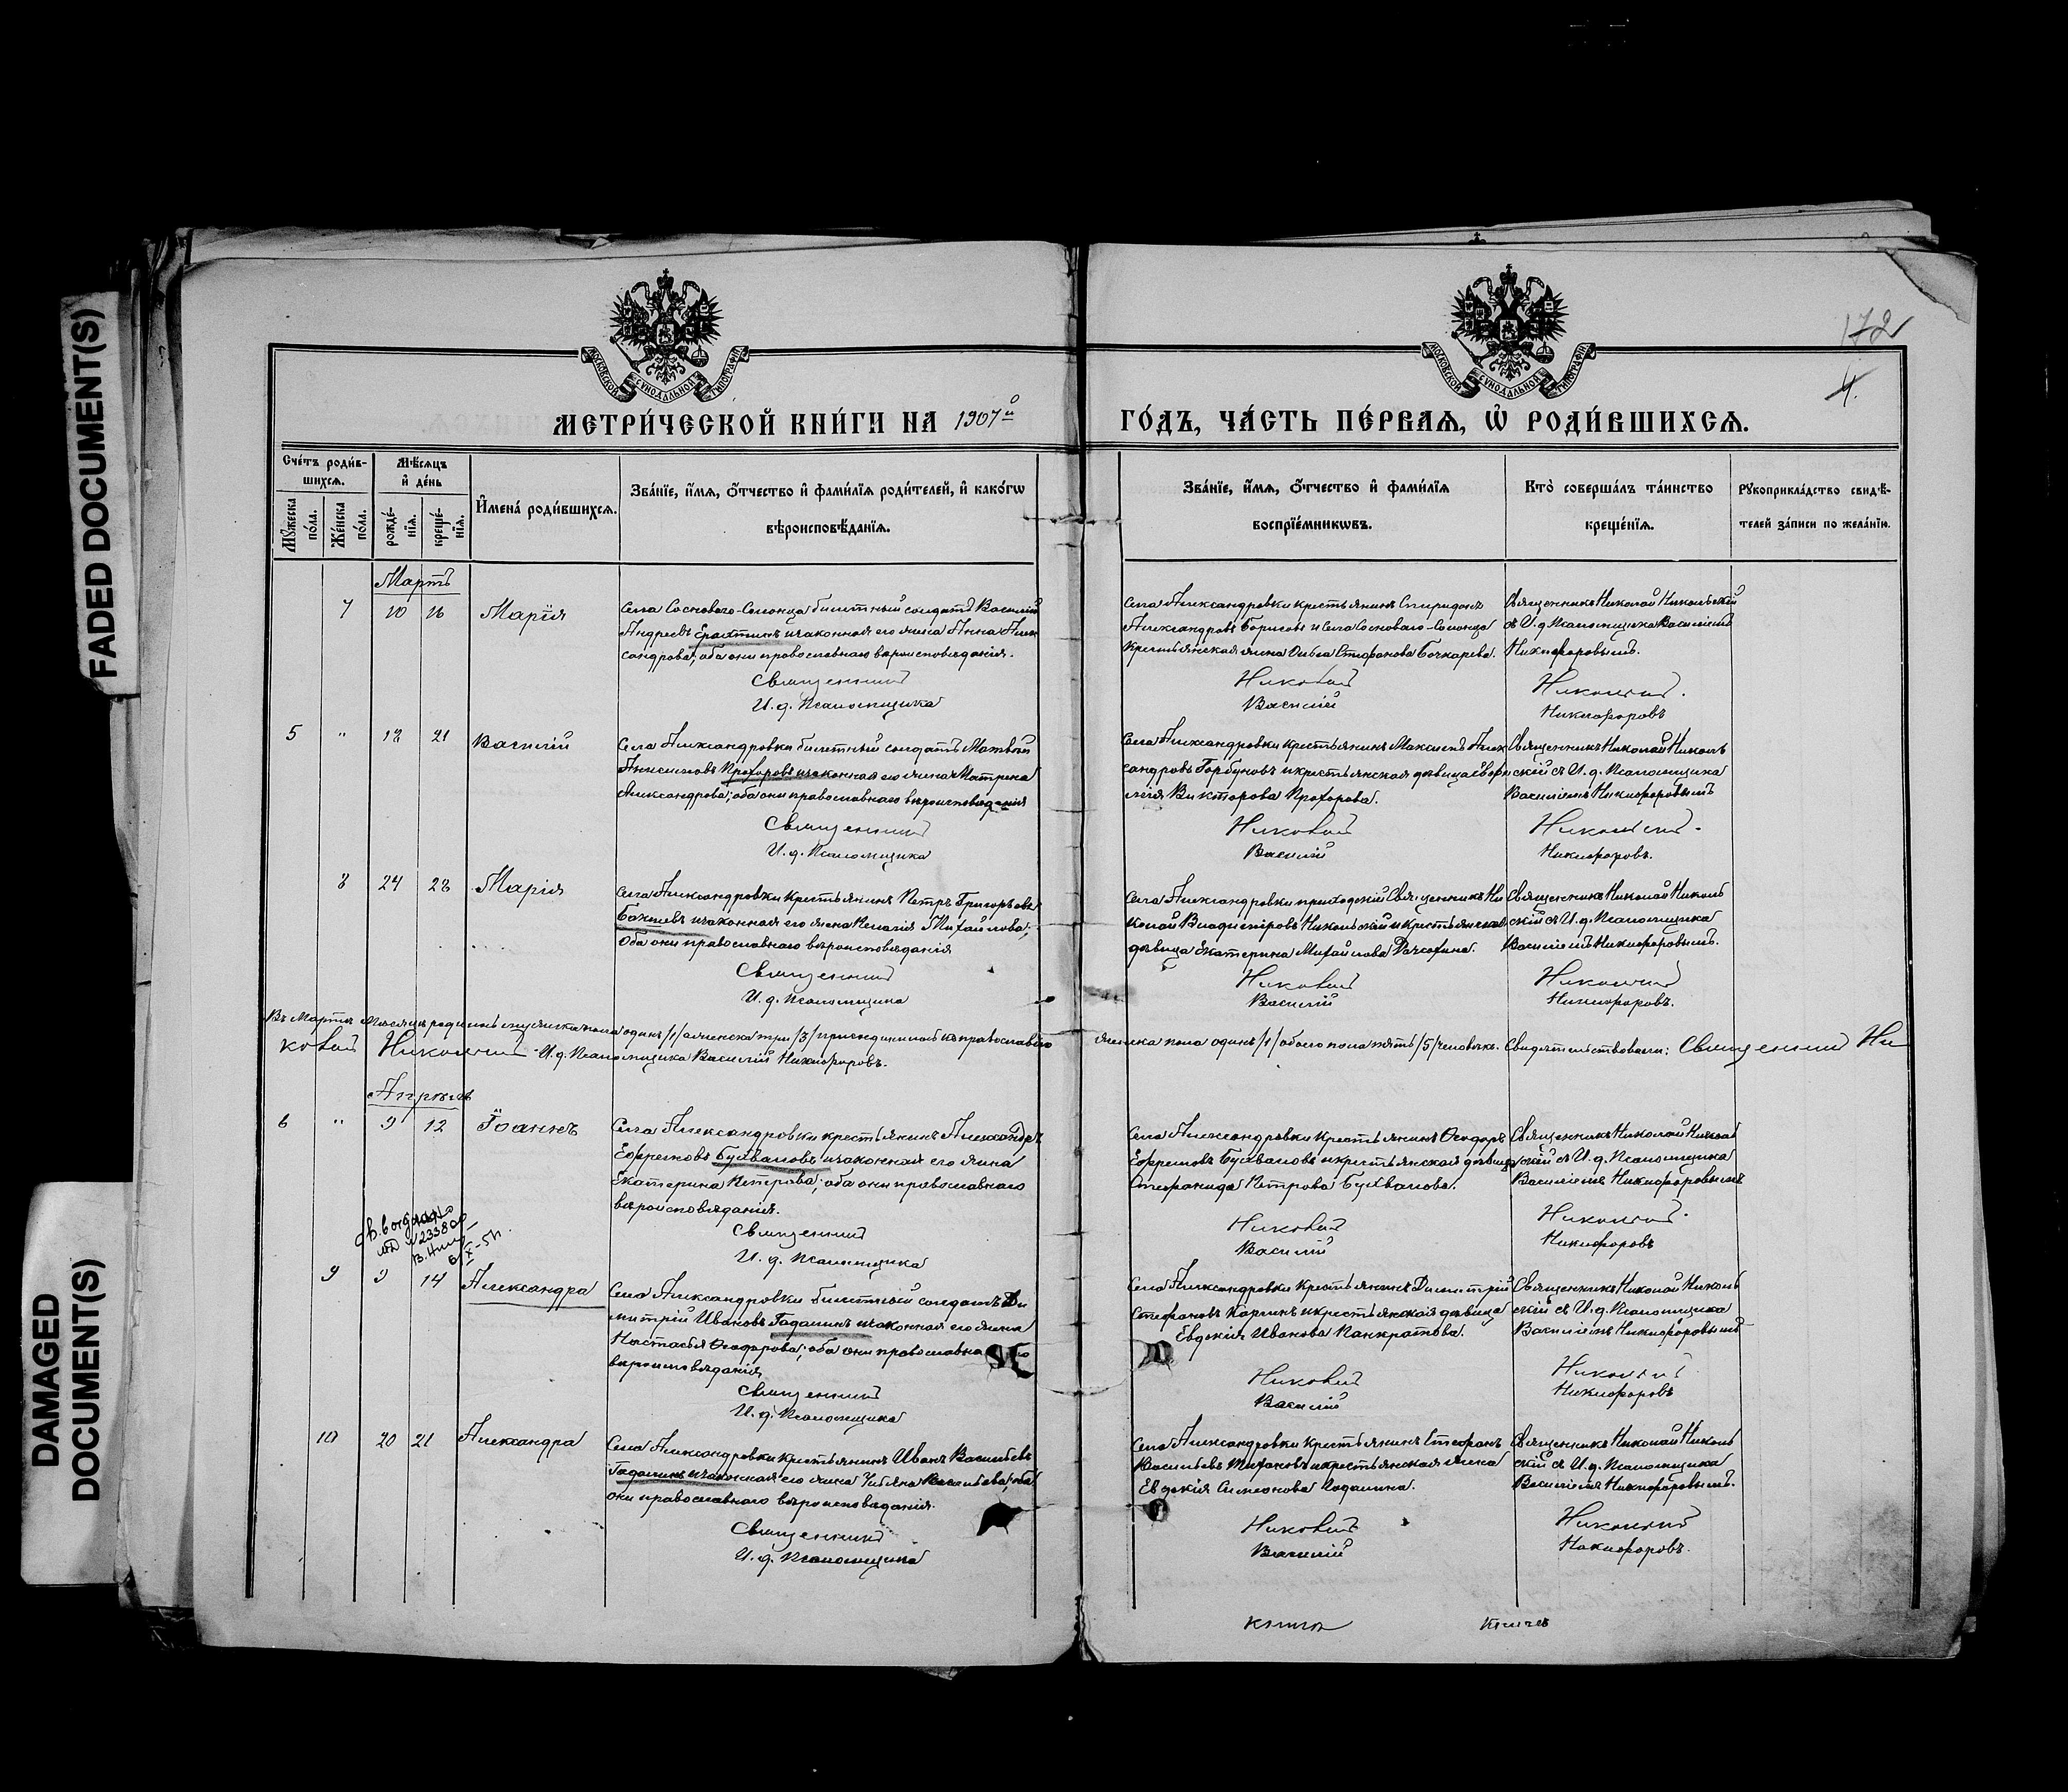 FADED DOCUMENT(S)
DAMAGED
DOCUMENT(S)
МОСКОВСКОЙ СУНОДАЛЬНОЙ ТИПОГРАФІИ
МОСКОВСКОЙ СУНОДАЛЬНОЙ ТИПОГРАФІИ
172
4.
МЕТРИ́ЧЕСКОЙ КНИ́ГИ НА 1907й
ГО́ДЪ, ЧА́СТЬ ПЕ́РВАѦ, Ѡ҆ РОДИ́ВШИХСѦ.
Сче́тъ роди́в-
шихсѧ.
Мѹ́жеска
по́ла.
Же́нска
по́ла.
Мѣ́сѧцъ
и҆ де́нь
рожде́-
нїѧ.
креще́-
нїѧ.
И҆мена̀ роди́вшихсѧ.
Зва́нїе, и҆́мѧ, ѻ҆́тчество и҆ фами́лїѧ роди́телей, и҆ како́гѡ
вѣроисповѣ́данїѧ.
Зва́нїе, и҆́мѧ, ѻ҆́тчество и҆ фами́лїѧ
воспрїе́мникѡвъ.
Кто̀ соверша́лъ та́инство
креще́нїѧ.
Рѹкоприкла́дство свидѣ́-
телей за́писи по жела́нїю.
Мартъ
7 10 16 Марія
Села Сосноваго-Солонца билетный солдатъ Василій
Андреевъ Ерастинъ и законная его жена Анна Алек
сандрова; оба они православнаго вѣроисповѣданія.
Священникъ
И. д. Псаломщика
Села Александровки крестьянинъ Спиридонъ
Александровъ Борисовъ и села Сосноваго-Солонца
Крестьянская жена Ольга Стефанова Бочкарева.
Николай
Василій
Священникъ Николай Никольскій
съ И. д. Псаломщика Василіемъ
Никифоровымъ.
Никольскій.
Никифоровъ
5 " 18 21 Василій
Села Александровки билетный солдатъ Матвѣй
Анисимовъ Прохоровъ и законная его жена Матрена
Александрова; оба они православнаго вѣроисповѣданія
Священникъ
И. д. Псаломщика
Села Александровки крестьянинъ Максимъ Алек
сандровъ Горбуновъ и крестьянская дѣвица
Викторова Прохорова.
Николай
Василій
Священникъ Николай Николь
скій съ И. д. Псаломщика
Василіемъ Никифоровымъ
Никольскій.
Никифоровъ.
8 24 28 Марія
Села Александровки крестьянинъ Петръ Григорьевъ
и законная его жена Пелагія Михайлова;
Оба они православнаго вѣроисповѣданія
Священникъ
И. д. Псаломщика
Села Александровки приходскій Священникъ Ни
колай Владиміровъ Никольскій и крестьянская
дѣвица Екатерина Михайлова
Николай
Василій
Священникъ Николай Николь
скій съ И. д. Псаломщика
Василіемъ Никифоровымъ.
Никольскій
Никифоровъ.
Въ Мартѣ Мѣсяцѣ родилось мужска пола одинъ /1/ а женска три /3/ присоединилось къ православію
женска пола одинъ /1/ обоего пола пять /5/ человѣкъ. Свидѣтельствовали: Священникъ Ни
колай Никольскій И. д. Псаломщика Василій Никифоровъ.
Апрѣль
6 " 9 12 Іоаннъ
Села Александровки крестьянинъ Александръ
Ефремовъ Буявановъ и законная его жена
Екатерина Петрова; оба они православнаго
вѣроисповѣданія.
Священникъ
И. д. Псаломщика
Села Александровки Крестьянинъ Ѳеодоръ
Ефремовъ Буявановъ и крестьянская дѣвица
Стефанида Петрова Буяванова.
Николай
Василій
Священникъ Николай Николь
скій съ И. д. Псаломщика
Василіемъ Никифоровымъ
Никольскій.
Никифоровъ
№ 2338
9 9 14 Александра
Села Александровки билетный солдатъ Ди
митрій Ивановъ Гадалинъ и законная его жена
Настасья Ѳеодорова; оба они православна
вѣроисповѣданія
Священникъ
И. д. Псаломщика
Села Александровки Крестьянинъ Димитрій
Стефановъ Карпинъ и крестьянская дѣвица
Евдокія Иванова Панкратова.
Николай
Василій
Священникъ Николай Николь
скій съ И. д. Псаломщика
Василіемъ Никифоровымъ
Никольскій
Никифоровъ
10 20 21 Александра
Села Александровки Крестьянинъ Иванъ Васильевъ
Гадалинъ и законная его жена Васильева; оба
они православнаго вѣроисповѣданія.
Священникъ
И. д. Псаломщика
Села Александровки Крестьянинъ Стефанъ
Васильевъ и крестьянская жена
Евдокія Симеонова Гадалина.
Николай
Василій
Священникъ Николай Николь
скій съ И. д. Псаломщика
Василіемъ Никифоровымъ.
Никольскій
Никифоровъ.